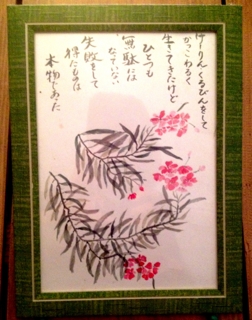 けーりん くるびんをして
かっこわるく
生きてきたけど
ひとつも
無駄には
なっていない
失敗をして
得たものは
本物じゃった